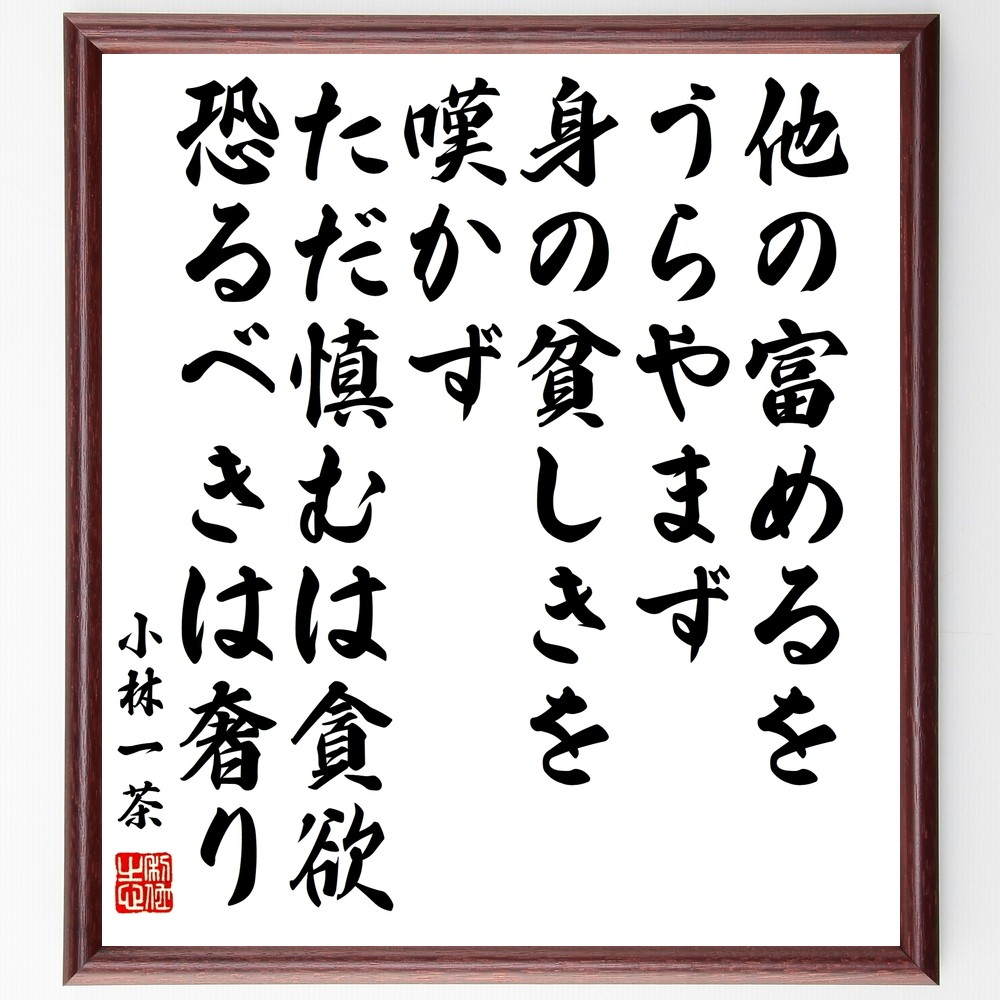 他の富めるを
うらやまず
身の貧しきを
嘆かず
ただ慎むは貪欲
恐るべきは奢り
小林一茶